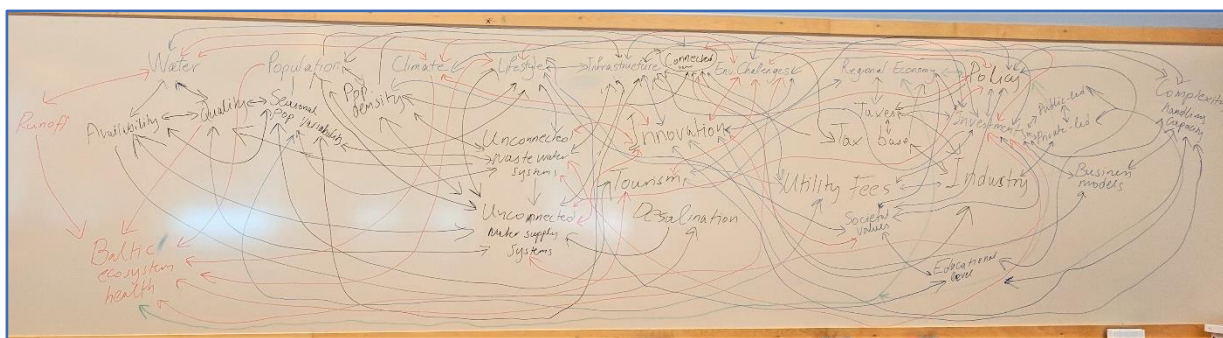 Water
Population
Climate
Lifestyle
Infrastructure
Connected
Env. Challenges
Regional Economy
Policy
Complexity
handling
capacity
Runoff
Availability
Quality
Seasonal
Pop variability
Pop.
density
Unconnected
Waste water
systems
Innovation
Taxes
Tax base
Investment
Public-led
Private-led
Tourism
Utility Fees
Industry
Business
models
Unconnected
Water supply
systems
Desalination
Societal
values
Educational
level
Baltic
ecosystem
health